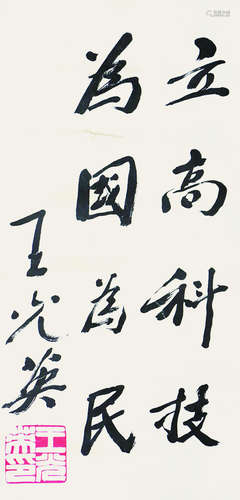 立高科技
為國為民
王光英
王光英印